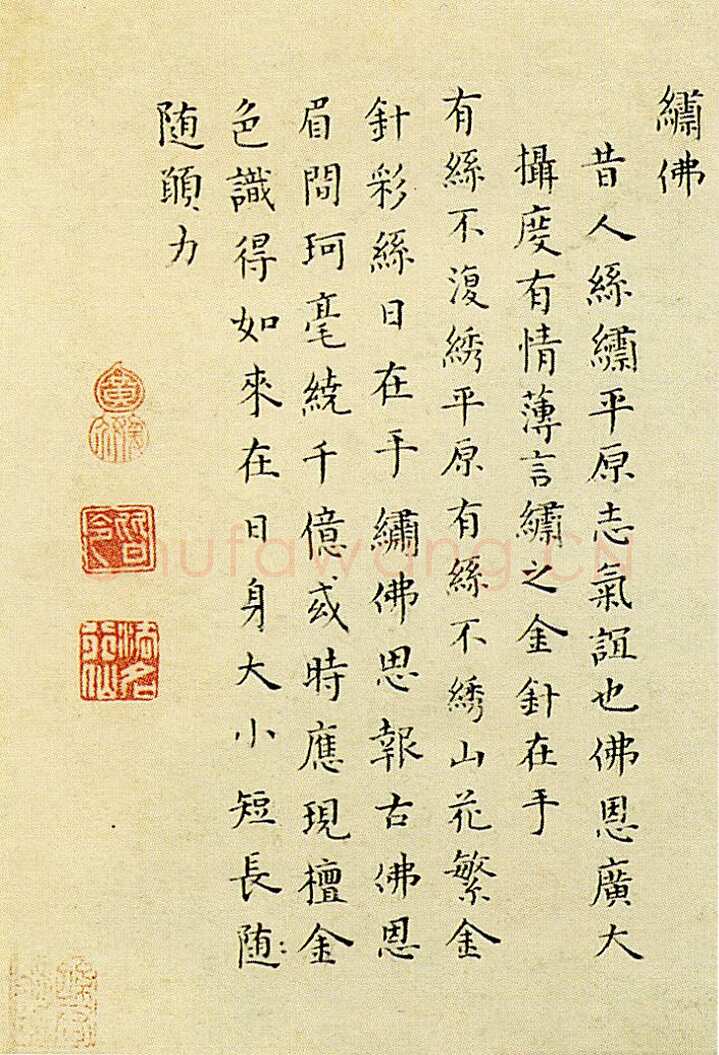 繡佛
昔人絲繡平原志氣誼也佛恩廣大
攝度有情薄言繡之金針在手
有絲不復綉平原有絲不綉山花繁金
針彩絲日在手繡佛思報古佛恩
眉間珂毫繞千億或時應現檀金
色識得如來在日身大小短長随
随願力
shufawang.CN